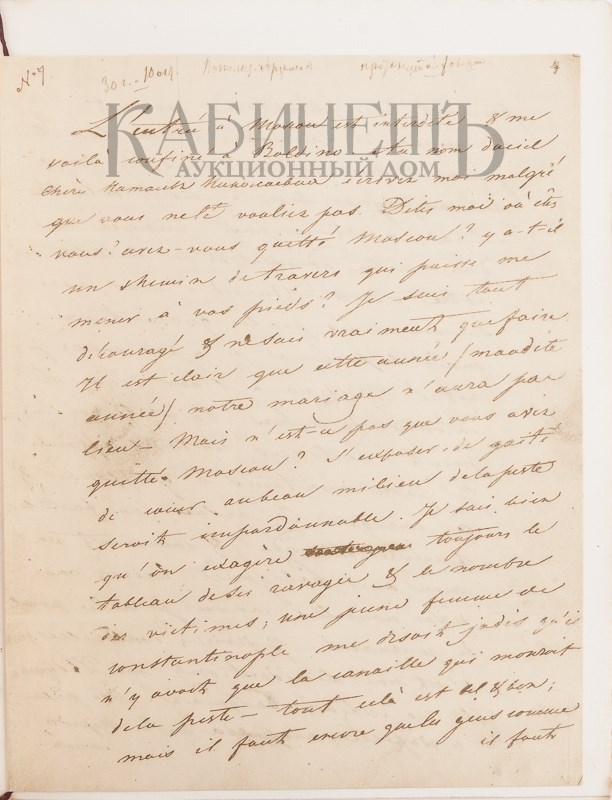 № 7
30 г.
3
КАБИНЕТЪ
АУКЦИОННЫЙ ДОМ
L'entrée à Moscou est interdite & me
voilà confiné à Boldino. Au nom du ciel
chère Наталья Николаевна écrivez moi malgré
que vous ne le vouliez pas. Dites moi où êtes
vous? avez-vous quitté Moscou? y a-t-il
un chemin de travers qui puisse me
mener à vos pieds? Je suis tout
découragé & ne sais vraiment que faire.
Il est clair que cette année (maudite
année) notre mariage n'aura pas
lieu — Mais n'est-ce pas que vous avez
quitté Moscou? S'exposer de gaité
de cœur au beau milieu de la peste
seroit impardonnable. Je sais bien
qu'on exagère toujours le
tableau de ses ravages & le nombre
des victimes; une jeune femme de
Constantinople me disoit jadis qu'il
n'y avoit que la canaille qui mouroit
de la peste — tout celà est bel & bon;
mais il faut encore que les gens comme
il faut